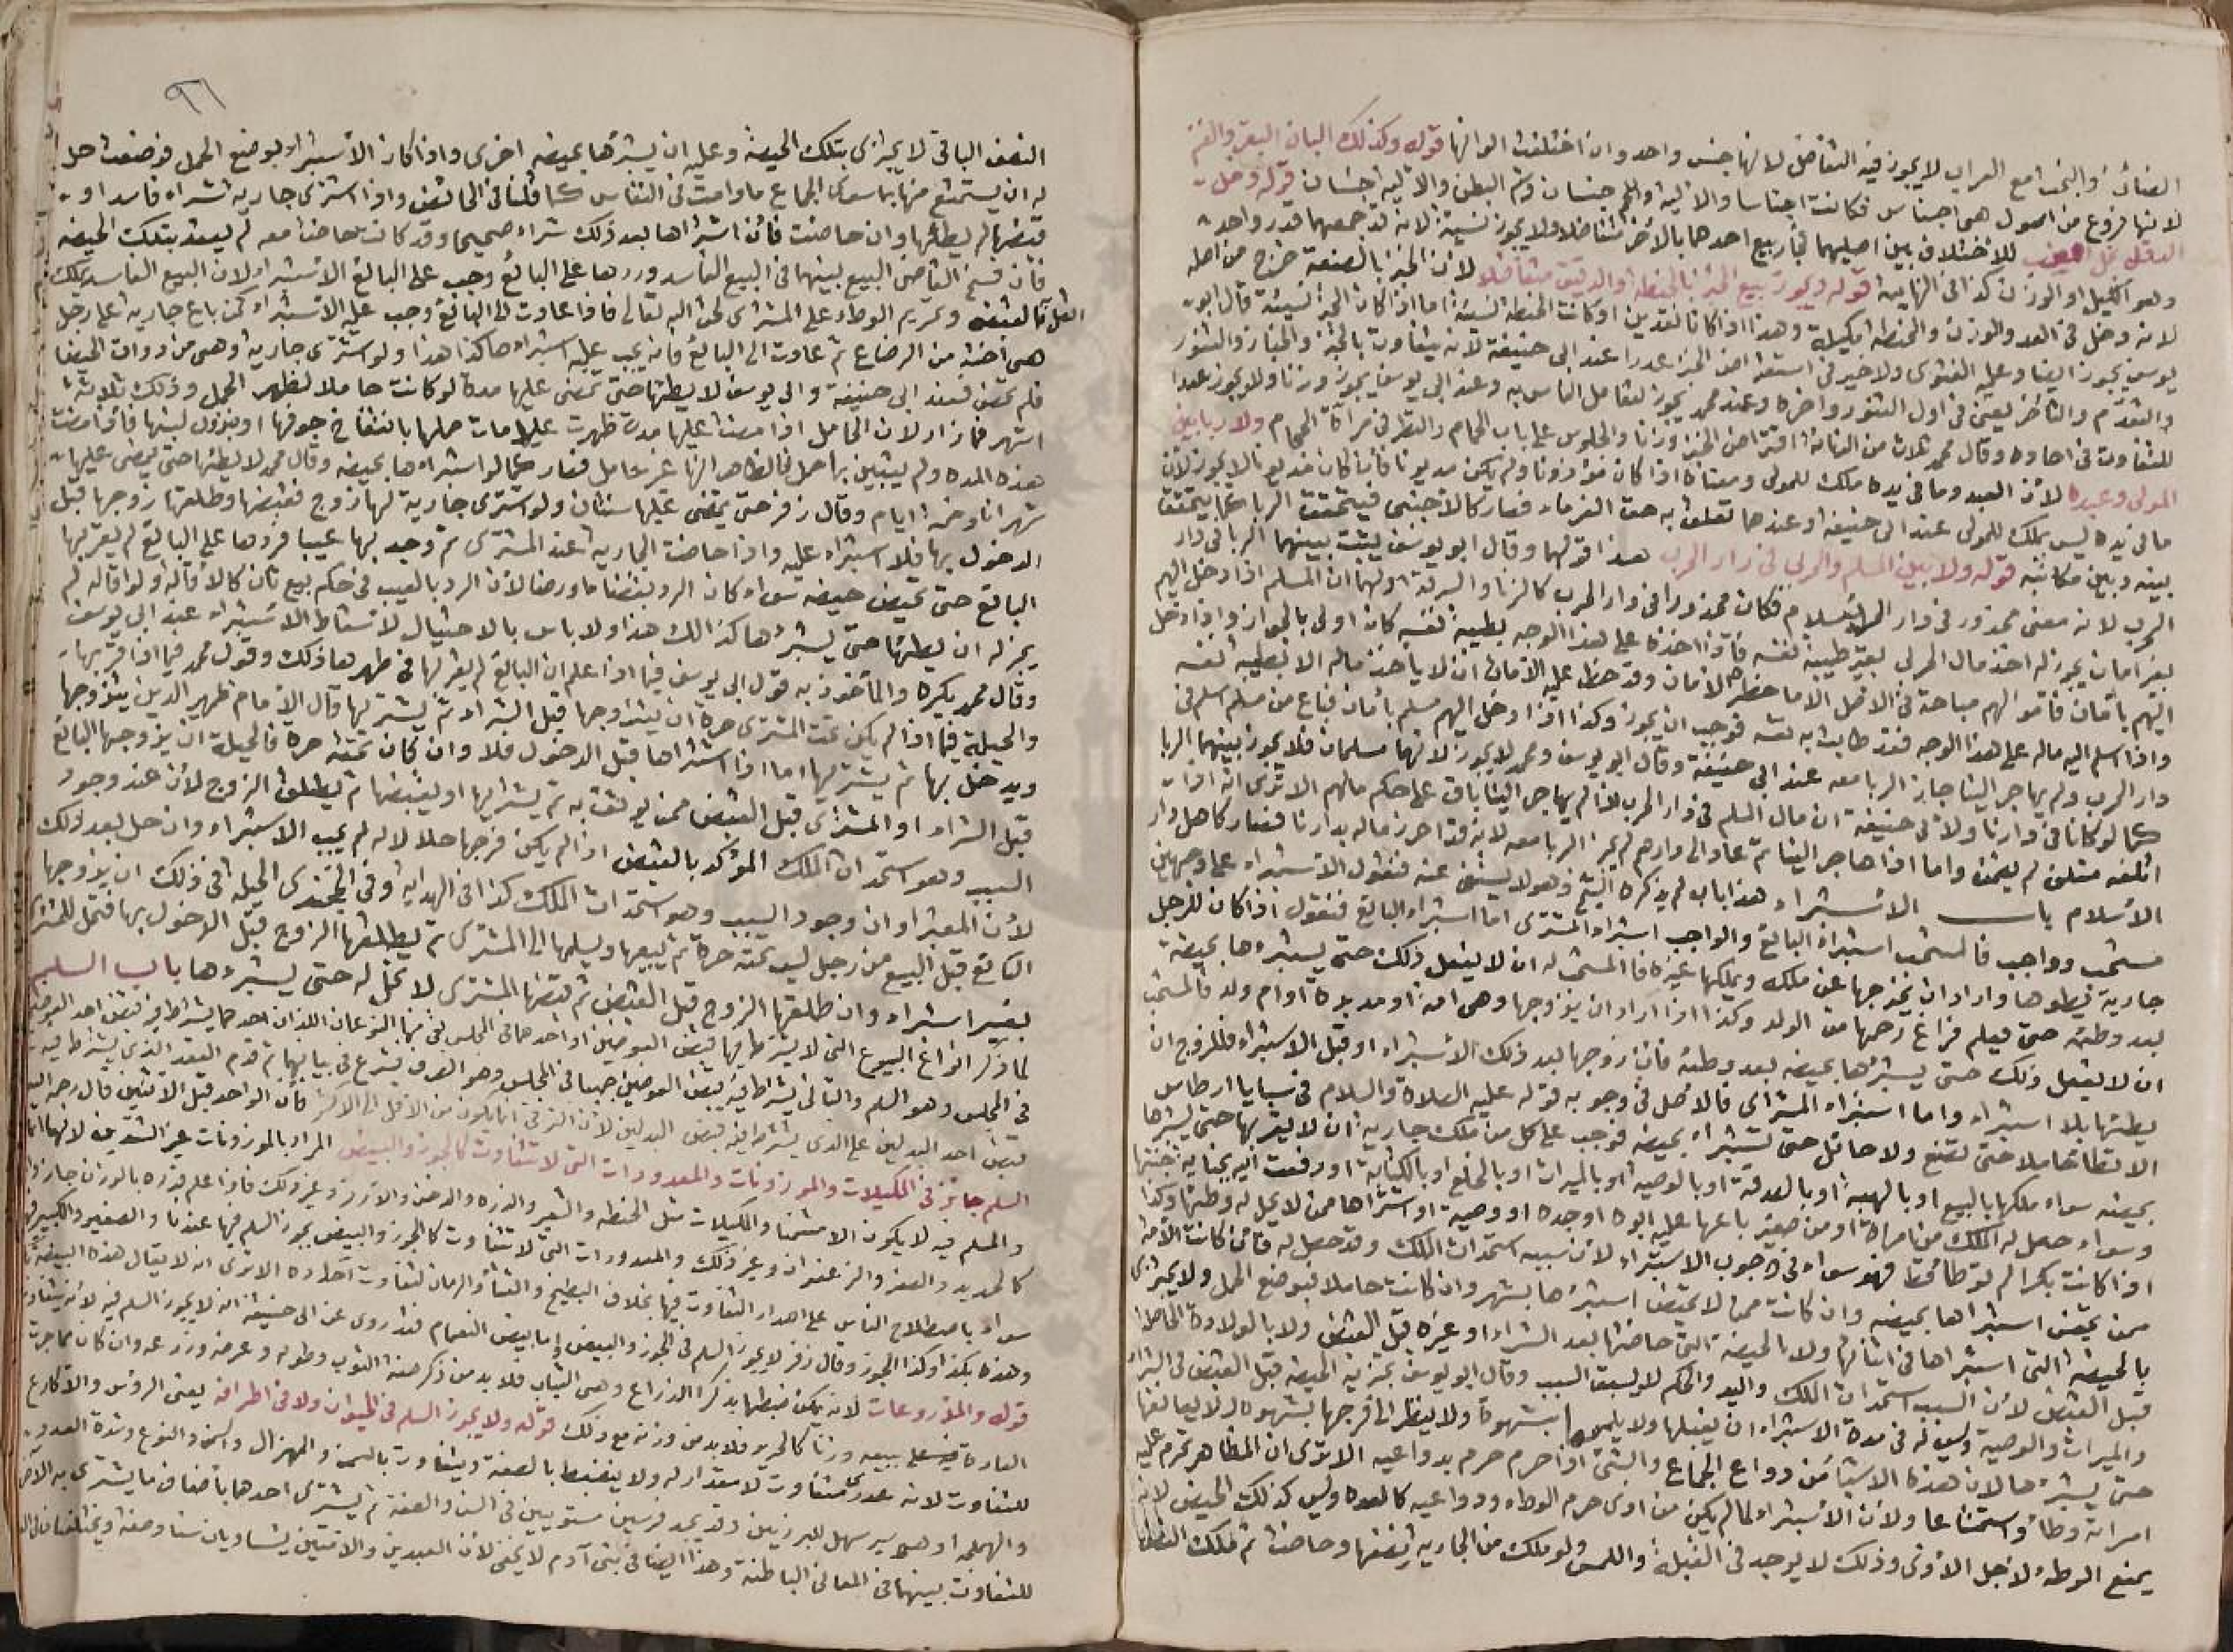 الضأن والبخت مع العراب لا يجوز فيه التفاضل لانها جنس واحد وان اختلفت الوانها قوله وكذلك البان البقر والغنم
لانها فروع من اصول هى اجناس فكانت اجناسا والالية واللحم جنسان وشحم البطن والالية جنسان قوله وخل
الدقل بخل العنب للاختلاف بين اصليهما فجاز بيع احدهما بالاخر متفاضلا ولا يجوز نسيئة لانه قد جمعهما قدر واحد
وهو الكيل او الوزن كذا فى النهاية قوله ويجوز بيع الخبز بالحنطة والدقيق متفاضلا لان الخبز بالصنعة خرج من اصله
لانه دخل فى العد والوزن والحنطة مكيلة وهذا اذا كانا نقدين او كانت الحنطة نسيئة اما اذا كان الخبز نسيئة قال ابو
يوسف يجوز ايضا وعليه الفتوى ولا خير فى استقراض الخبز عددا عند ابى حنيفة لانه يتفاوت بالخبز والخباز والتنور
والتقدم والتاخر يعنى فى اول التنور واخره وعند محمد يجوز لتعامل الناس به وعند ابى يوسف يجوز وزنا ولا يجوز عددا
للتفاوت فى احاده وقال محمد ثلاث من الدناءة استقراض الخبز وزنا والجلوس على باب الحمام والنظر فى مرآة الحجام ولا ربا بين
المولى وعبده لان العبد وما فى يده ملك للمولى ومعناه اذا كان مؤذونا ولم يكن مديونا فان كان مديونا لا يجوز لان
ما فى يده ليس بملك للمولى عند ابى حنيفة وعندهما تعلق به حق الغرماء فصار كالاجنبى فيتحقق الربا كما يتحقق
بينه وبين مكاتبه قوله ولا بين المسلم والحربى فى دار الحرب هذا قولهما وقال ابو يوسف يثبت بينهما الربا فى دار
الحرب لانه معنى محذور فى دار الاسلام فكان محذورا فى دار الحرب كالزنا والسرقة ولهما ان المسلم اذا دخل اليهم
بغير امان يجوز له اخذ مال الحربى بغير طيبة نفسه فاذا اخذه على هذا الوجه بطيبة نفسه كان اولى بالجواز واذا دخل
اليهم بامان فاموالهم مباحة فى الاصل الا ما حظره الامان وقد حظر عليه الامان ان لا ياخذ ماله الا بطيبة نفسه
واذا اسلم اليه ماله على هذا الوجه فقد طابت به نفسه فوجب ان يجوز وكذا اذا دخل اليهم مسلم بامان فباع من مسلم اسلم فى
دار الحرب ولم يهاجر الينا جاز الربا معه عند ابى حنيفة وقال ابو يوسف ومحمد لا يجوز لانهما مسلمان فلا يجوز بينهما الربا
كما لو كانا فى دارنا ولابى حنيفة ان مال المسلم فى دار الحرب اذا لم يهاجر الينا باق على حكم مالهم الا ترى انه اذا
اتلفه متلف لم يضمنه واما اذا هاجر الينا ثم عاد الى دارهم لم يجز الربا معه لانه قد احرز ماله بدارنا فصار كاهل دار
الاسلام باب الاستبراء هذا باب لم يذكره الشيخ وهو لا يستغنى عنه فنقول الاستبراء على وجهين
مستحب وواجب فالمستحب استبراء البائع والواجب استبراء المشترى اما استبراء البائع فنقول اذا كان للرجل
جارية فيطوها واراد ان يخرجها عن ملكه ويملكها غيره فالمستحب له ان لا يفعل ذلك حتى يستبرءها بحيضة
بعد وطئه حتى يعلم فراغ رحمها من الولد وكذا اذا اراد ان يزوجها وهى امة او مدبرة او ام ولد فالمستحب
ان لا يفعل ذلك حتى يستبرءها بحيضة بعد وطئه فان زوجها بعد ذلك الاستبراء او قبل الاستبراء فللزوج ان
يطئها بلا استبراء واما استبراء المشترى فالاصل فى وجوبه قوله عليه الصلاة والسلام فى سبايا اوطاس
الا لا توطا حاملا حتى تضع ولا حائل حتى تستبراء بحيضة فوجب على كل من ملك جارية ان لا يقربها حتى يستبرءها
بحيضة سواء ملكها بالبيع او بالهبة او بالصدقة او بالوصية او بالميراث او بالخلع او بالكتابة او دفعت اليه بجناية جنتها
وسواء حصل له الملك من امراة او من صغير باعها عليه ابوه او جده او وصيه او اشتراها ممن لا يحل له وطئها وكذا
اذا كانت بكرا لم توطا قط فهو سواء فى وجوب الاستبراء لان سببه استحداث الملك وقد حصل له فان كانت الامة
ممن تحيض استبراها بحيضة وان كانت ممن لا تحيض استبرءها بشهر وان كانت حاملا فبوضع الحمل ولا يجتزى
بالحيضة التى اشتراها فى اثنائها ولا الحيضة التى حاضتها بعد الشراء او غيره قبل القبض ولا بالولادة الحاصلة
قبل القبض لان السبب استحداث الملك واليد والحكم لا يسبق السبب وقال ابو يوسف يجتزى بالحيضة قبل القبض فى الشراء
والميراث والوصية وليس له فى مدة الاستبراء ان يقبلها ولا يلمسها بشهوة ولا ينظر الى فرجها بشهوة ولا يعانقها
حتى يستبرءها لان هذه الاشياء من دواع الجماع والشئ اذا حرم حرم بدواعيه الا ترى ان المظاهر تحرم عليه
امراته وطاء واستمتاعا ولان الاستبراء لما لم يكن من اذى حرم الوطء ودواعيه كالعدة وليس كذلك الحيض لانه
يمنع الوطء لاجل الاذى وذلك لا يوجد فى القبلة واللمس ولو ملك من الجارية نصفها وحاضت ثم ملك النصف
٩٦
النصف الباقى لا يجتزى بتلك الحيضة وعليه ان يستبرءها بحيضة اخرى واذا كان الاستبراء بوضع الحمل فوضعت حل
له ان يستمتع منها بما سوى الجماع ما دامت فى النفاس كما قلنا فى الحائض واذا اشترى جارية شراء فاسدا و
قبضها لم يطئها وان حاضت فان اشتراها بعد ذلك شراء صحيحا وقد كانت حاضت معه لم يعتد بتلك الحيضة
فان فسخ القاضى البيع بينهما فى البيع الفاسد وردها على البائع وجب على البائع الاستبراء لان البيع الفاسد يملك
فلم تحض فعند ابى حنيفة وابى يوسف لا يطئها حتى تمضى عليها مدة لو كانت حاملا لظهر الحمل وذلك ثلاثة
اشهر فما زاد لان الحامل اذا مضت عليها مدة ظهرت علامات حملها بانتفاخ جوفها او بنزول لبنها فاذا مضت
هذه المدة ولم يتبين بها حمل فالظاهر انها غير حامل فصار كما لو استبراها بحيضة وقال محمد لا يطئها حتى يمضى عليها
شهران وخمسة ايام وقال زفر حتى تمضى عليها سنتان ولو اشترى جارية لها زوج فقبضها وطلقها زوجها قبل
الدخول بها فلا استبراء عليه واذا حاضت الجارية عند المشترى ثم وجد بها عيبا فردها على البائع لم يقربها
البائع حتى تحيض حيضة سواء كان الرد بقضا او رضا لان الرد بالعيب فى حكم بيع ثان كالاقالة ولو اقاله لم
يجز له ان يطئها حتى يستبرءها كذالك هذا ولا باس بالاحتيال لاسقاط الاستبراء عند ابى يوسف
وقال محمد يكره والماخوذ به قول ابى يوسف فيما اذا علم ان البائع لم يقربها فى طهرها ذلك وقول محمد فيما اذا قربها
والحيلة فيما اذا لم يكن تحت المشترى حرة ان يتزوجها قبل الشراء ثم يشتريها قال الامام ظهير الدين يتزوجها
ويدخل بها ثم يشتريها اما اذا اشتراها قبل الدخول فلا وان كان تحته حرة فالحيلة ان يزوجها البائع
قبل الشراء او المشترى قبل القبض ممن يوثق به ثم يشتريها او يقبضها ثم يطلق الزوج لان عند وجود
السبب وهو استحداث الملك المؤكد بالقبض اذا لم يكن فرجها حلالا له لم يجب الاستبراء وان حل بعد ذلك
لان المعتبر اوان وجود السبب وهو استحداث الملك كذا فى الهداية وفى الخجندى الحيلة فى ذلك ان يزوجها
البائع قبل البيع من رجل ليس تحته حرة ثم يبيعها ويسلمها الى المشترى ثم يطلقها الزوج قبل الدخول بها فتحل للمشترى
بغير استبراء وان طلقها الزوج قبل القبض ثم قبضها المشترى لا تحل له حتى يستبرءها باب السلم
لما ذكر انواع البيوع التى لا يشترط فيها قبض العوضين او احدهما فى المجلس بقى منها النوعان اللذان احدهما يشترط فيه قبض احد العوضين
فى المجلس وهو السلم والثانى يشترط فيه قبض العوضين جميعا فى المجلس وهو الصرف فشرع فى بيانهما ثم قدم العقد الذى يشترط فيه
قبض احد البدلين على الذى يشترط فيه قبض البدلين لان الترقى انما يكون من الاقل الى الاكثر فان الواحد قبل الاثنين قال رحمه الله
السلم جائز فى المكيلات والموزونات والمعدودات التى لا تتفاوت كالجوز والبيض المراد بالموزونات غير النقدين لانهما اثمان
والمسلم فيه لا يكون الا مثمنا والمكيلات مثل الحنطة والشعير والذرة والدخن والارز وغير ذلك فاذا علم قدره بالوزن جاز
كالحديد والصفر والزعفران وغير ذلك والمعدودات التى لا تتفاوت كالجوز والبيض يجوز السلم فيها عندنا والصغير والكبير فيها
سواء باصطلاح الناس على اهدار التفاوت فيها بخلاف البطيخ والقثاء والرمان لتفاوت آحاده الا ترى انه لا يقال هذه البيضة
وهذه بكذا وكذا الجوز وقال زفر لا يجوز السلم فى الجوز والبيض واما بيض النعام فقد روى عن ابى حنيفة انه لا يجوز السلم فيه لانه يتفاوت
قوله والمذروعات لانه يمكن ضبطها بذكر الذراع وهى الثياب فلا بد من ذكر صفة الثوب وطوله وعرضه وذرعه وان كان مما جرت
العادة على بيعه وزنا كالحرير فلا بد من وزنه مع ذلك قوله ولا يجوز السلم فى الحيوان ولا فى اطرافه يعنى الرؤس والاكارع
للتفاوت لانه عددى متفاوت لا مقدار له ولا ينضبط بالصفة ويتفاوت بالسمن والهزال والسن والنوع وشدة العدو
والهملجة وهو سير سهل للبرزين وقد يجد فرسين مستويين فى السن والصفة ثم يشترى احدهما باضعاف ما يشترى به الاخر
للتفاوت بينهما فى المعانى الباطنة وهذا ايضا فى بنى آدم لا يخفى لان العبدين والامتين يتساويان سنا وصفة ويختلفان